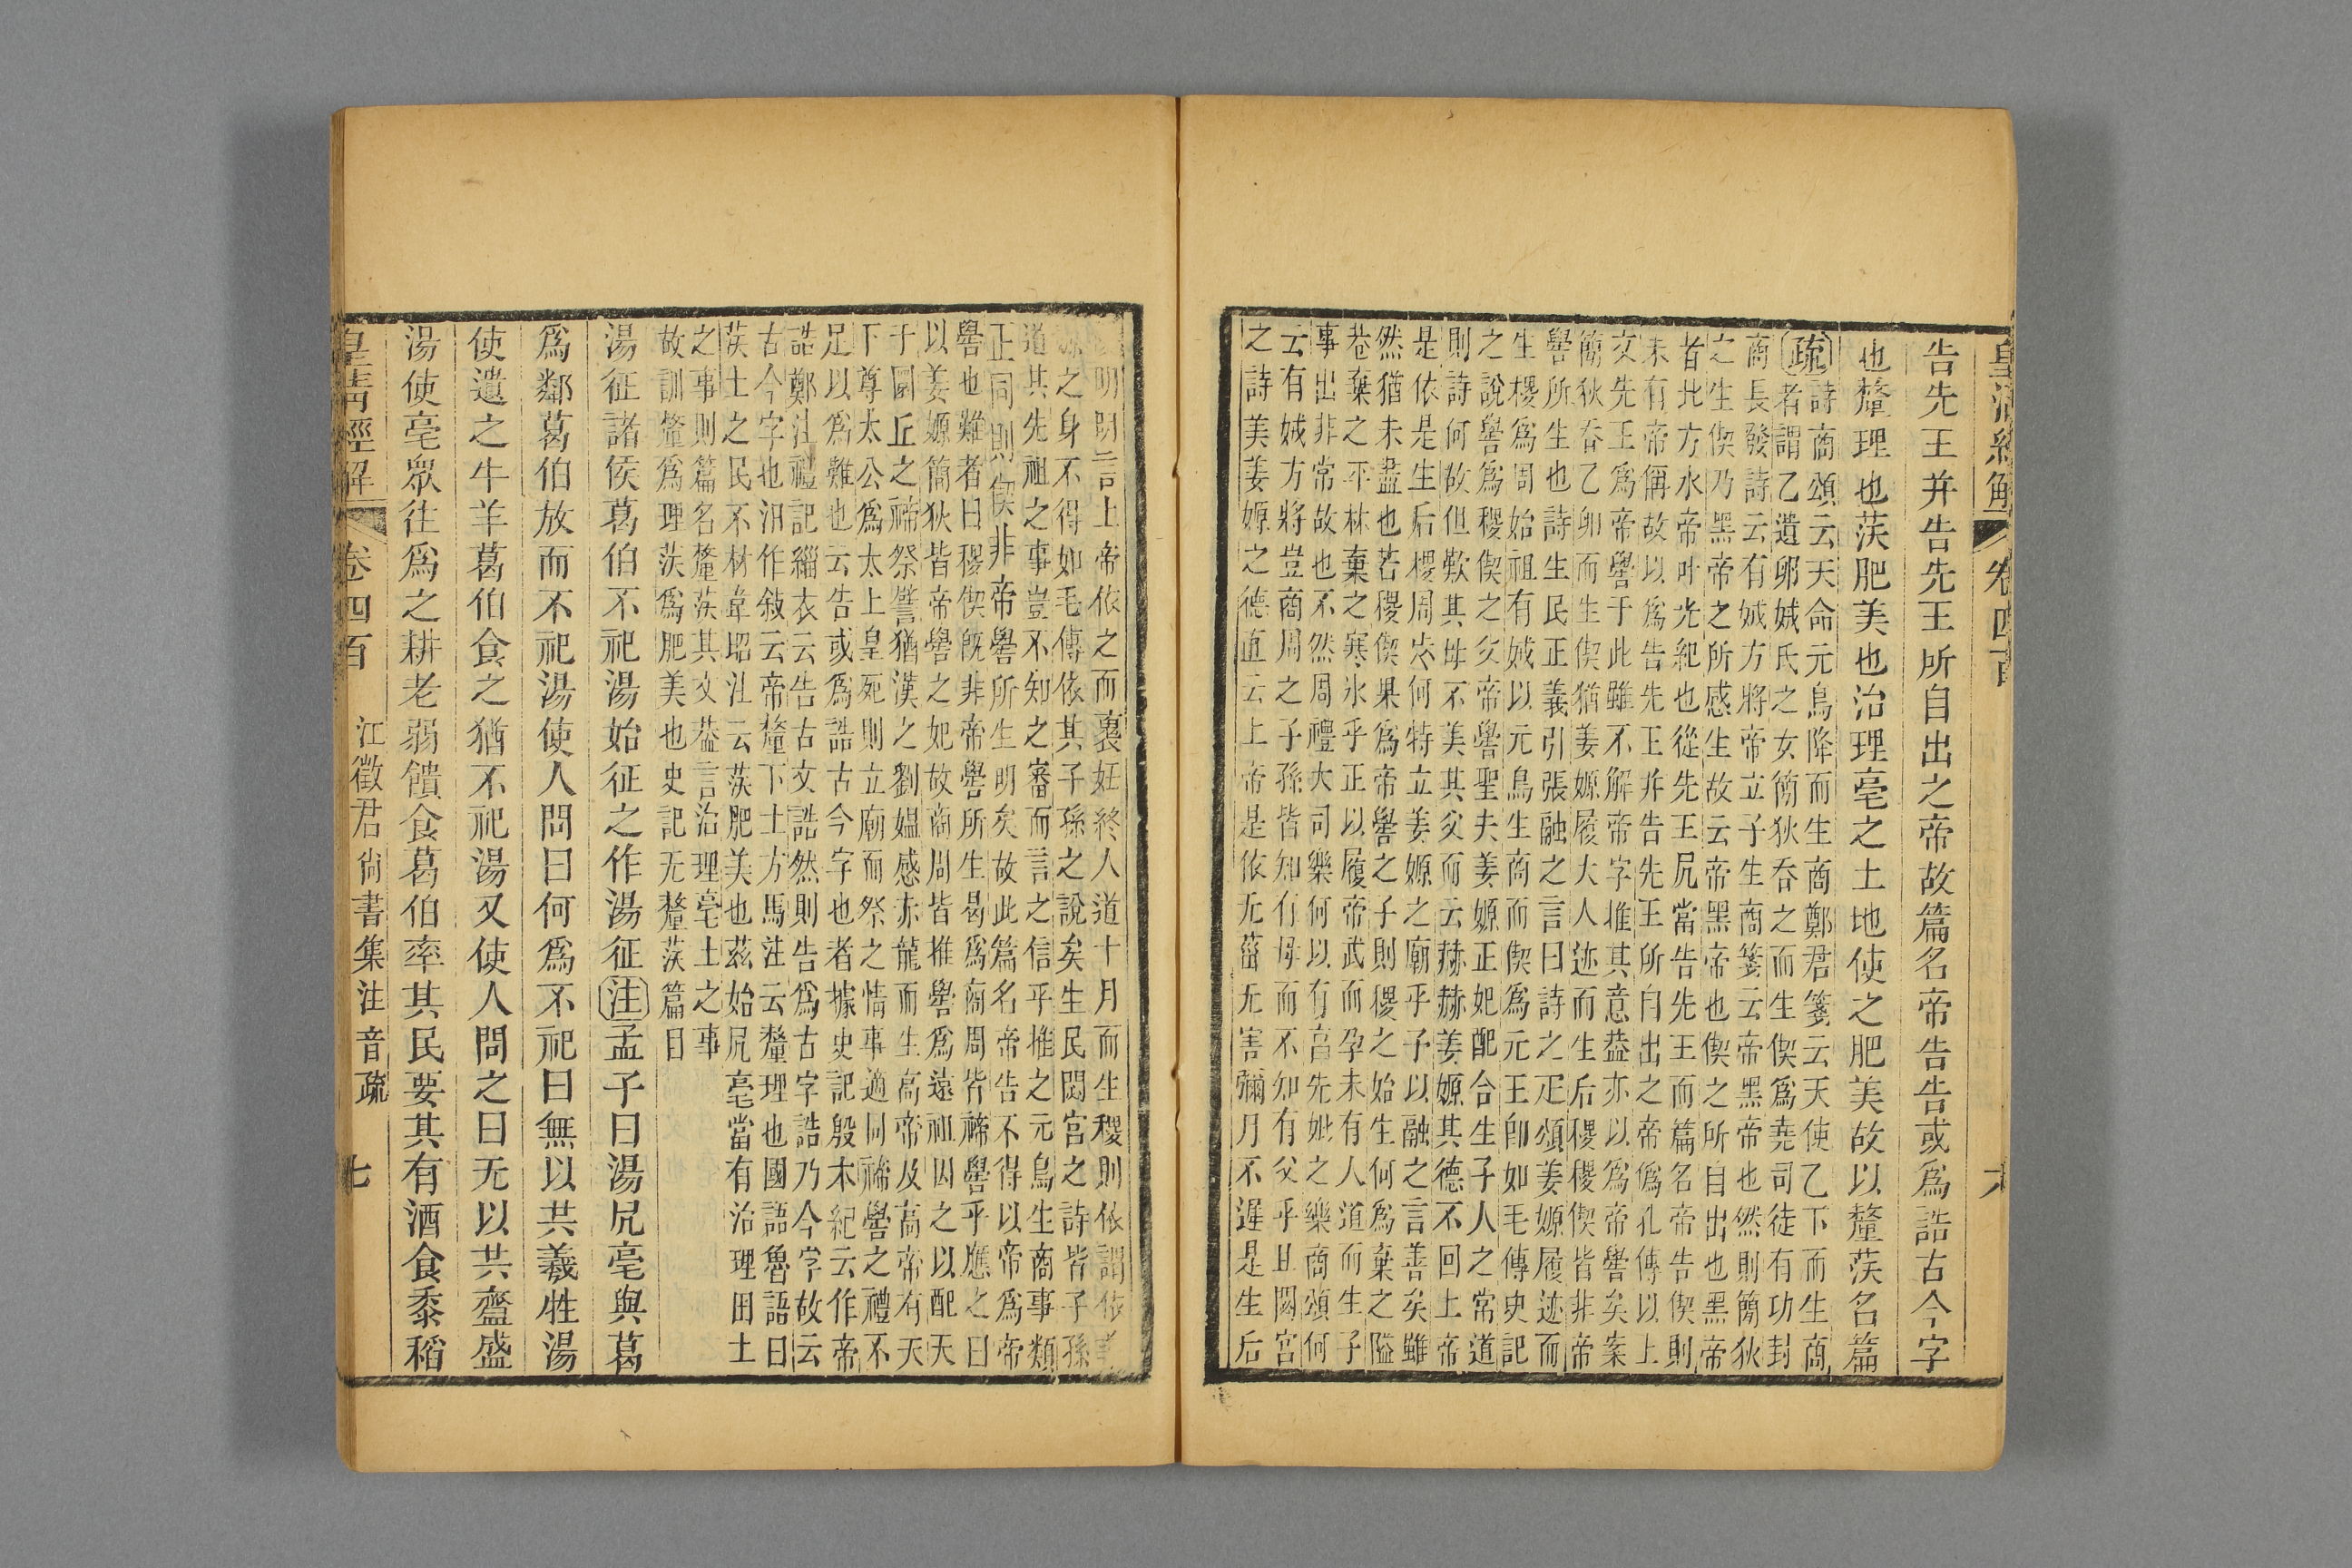 皇清經解 卷四百 六
告先王并告先王所自出之帝故篇名帝告告或爲誥古今字
也釐理也茨肥美也治理亳之土地使之肥美故以釐茨名篇
疏 詩商頌云天命元鳥降而生商鄭君箋云天使乙下而生商
者謂乙遺卵娀氏之女簡狄吞之而生偰爲堯司徒有功封
商長發詩云有娀方將帝立子生商箋云帝黑帝也然則簡狄
之生偰乃黑帝之所感生故云帝黑帝也偰之所自出也黑帝
者北方水帝叶光紀也從先王凥當告先王而篇名帝告偰則
未有帝偁故以爲告先王并告先王所自出之帝僞孔傳以上
文先王爲帝嚳于此雖不解帝字推其意葢亦以爲帝嚳矣案
簡狄吞乙卵而生偰猶姜嫄履大人迹而生后稷稷偰皆非帝
嚳所生也詩生民正義引張融之言曰詩之疋頌姜嫄履迹而
生稷爲周始祖有娀以元鳥生商而偰爲元王卽如毛傳史記
之說嚳爲稷偰之父帝嚳聖夫姜嫄正妃配合生子人之常道
則詩何故但歎其母不美其父而云赫赫姜嫄其德不回上帝
是依是生后稷周𡴘何特立姜嫄之廟乎予以融之言善矣雖
然猶未盡也若稷偰果爲帝嚳之子則稷之始生何爲棄之隘
巷棄之平林棄之寒冰乎正以履帝武而孕未有人道而生子
事出非常故也不然周禮大司樂何以有亯先妣之樂商頌何
云有娀方將豈商周之子孫皆知有母而不知有父乎且閟宮
之詩美姜嫄之德直云上帝是依无菑无害彌月不遟是生后
明明言上帝依之而褱妊終人道十月而生稷則依謂依
嫄之身不得如毛傳依其子孫之說矣生民閟宮之詩皆子孫
道其先祖之事豈不知之審而言之信乎推之元鳥生商事類
正同則偰非帝嚳所生明矣故此篇名帝告不得以帝爲帝
嚳也難者曰稷偰旣非帝嚳所生曷爲商周皆禘嚳乎應之曰
以姜嫄簡狄皆帝嚳之妃故商周皆推嚳爲遠祖因之以配天
于圜丘之禘祭譬猶漢之劉媼感赤龍而生高帝及高帝有天
下尊太公爲太上皇死則立廟而祭之情事適同禘嚳之禮不
足以爲難也云告或爲誥古今字也者據史記殷本紀云作帝
誥鄭注禮記緇衣云告古文誥然則告爲古字誥乃今字故云
古今字也汨作敘云帝釐下土方馬注云釐理也國語魯語曰
茨土之民不材韋昭注云茨肥美也茲始凥亳當有治理田土
之事則篇名釐茨其文葢言治理亳土之事
故訓釐爲理茨爲肥美也史記无釐茨篇目
湯征諸侯葛伯不祀湯始征之作湯征注孟子曰湯凥亳與葛
爲鄰葛伯放而不祀湯使人問曰何爲不祀曰無以共羲牲湯
使遺之牛羊葛伯食之猶不祀湯又使人問之曰无以共齍盛
湯使亳眾往爲之耕老弱饋食葛伯率其民要其有酒食黍稻
皇清經解 卷四百 江徵君尙書集注音疏 七